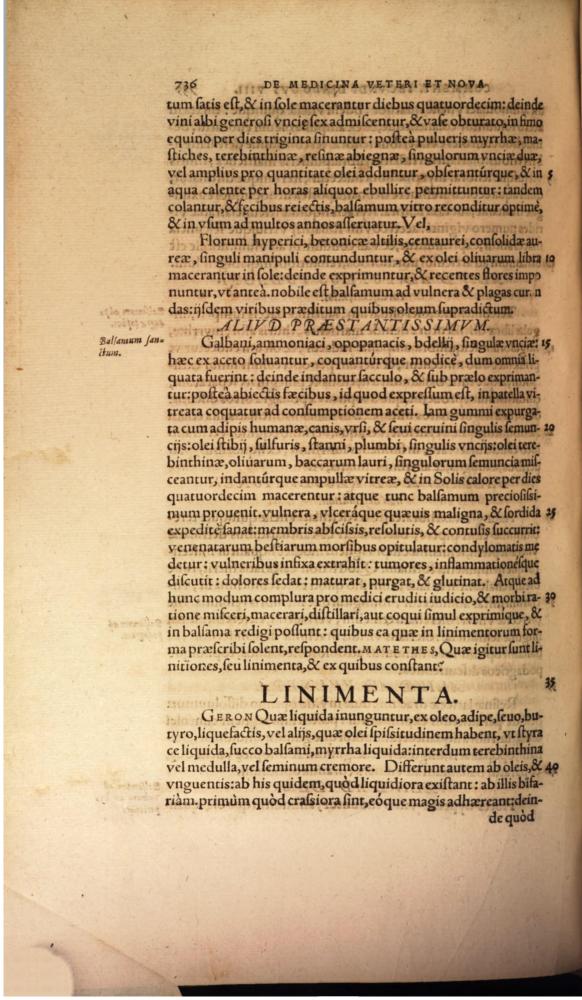 736 DE MEDICINA VETERI ET NOVA
tum satis est,& in sole macerantur diebus quatuordecim: deinde
vini albi generosi vncię sex admiscentur,& vase obturato,in fimo
equino per dies triginta sinuntur: posteà pulueris myrrhæ, ma-
stiches, terebinthinæ, resinæ abiegnæ, singulorum vnciæ duæ,
vel amplius pro quantitate olei adduntur, obserantúrque, & in 5
aqua calente per horas aliquot ebullire permittuntur: tandem
colantur,&fęcibus reiectis,balsamum vitro reconditur optimè,
& in vsum ad multos annos asseruatur. Vel,
Florum hyperici, betonicæ altilis, centaurei, consolidæ au-
reæ, singuli manipuli contunduntur, & ex olei oliuarum libra 10
macerantur in sole: deinde exprimuntur,& recentes flores impo
nuntur,vt anteà. nobile est balsamum ad vulnera & plagas curan
das: ijsdem viribus præditum quibus oleum supradictum.
ALIVD PRÆSTANTISSIMVM.
Balsamum san-
ctum.
Galbani, ammoniaci, opopanacis, bdellij, singulæ vnciæ: 15
hæc ex aceto soluantur, coquantúrque modicè, dum omnia li-
quata fuerint: deinde indantur sacculo, & sub prælo expriman-
tur: posteà abiectis fæcibus, id quod expressum est, in patella vi-
treata coquatur ad consumptionem aceti. Iam gummi expurga-
ta cum adipis humanæ, canis, vrsi, & seui ceruini singulis semun- 20
cijs: olei stibij, sulfuris, stanni, plumbi, singulis vncijs: olei tere-
binthinæ, oliuarum, baccarum lauri, singulorum semuncia mis-
ceantur, indantúrque ampullæ vitreæ, & in Solis calore per dies
quatuordecim macerentur: atque tunc balsamum preciosissi-
mum prouenit. vulnera, vlceráque quæuis maligna, & sordida 25
expeditè sanat: membris abscissis, resolutis, & contusis succurrit:
venenatarum bestiarum morsibus opitulatur: condylomatis me
detur: vulneribus infixa extrahit: tumores, inflammationésque
discutit: dolores sedat: maturat, purgat, & glutinat. Atque ad
hunc modum complura pro medici eruditi iudicio, & morbi ra- 30
tione misceri, macerari, distillari, aut coqui simul exprimíque, &
in balsama redigi possunt: quibus ea quæ in linimentorum for-
ma præscribi solent, respondent. MATETHES, Quæ igitur sunt li-
nitiones, seu linimenta, & ex quibus constant?
35
LINIMENTA.
GERON Quæ liquida inunguntur, ex oleo, adipe, seuo, bu-
tyro, liquefactis, vel alijs, quæ olei spissitudinem habent, vt styra
ce liquida, succo balsami, myrrha liquida: interdum terebinthina
vel medulla, vel seminum cremore. Differunt autem ab oleis, & 40
vnguentis: ab his quidem, quòd liquidiora existant: ab illis bifa-
riàm. primùm quòd crassiora sint, eóque magis adhæreant: dein-
de quòd